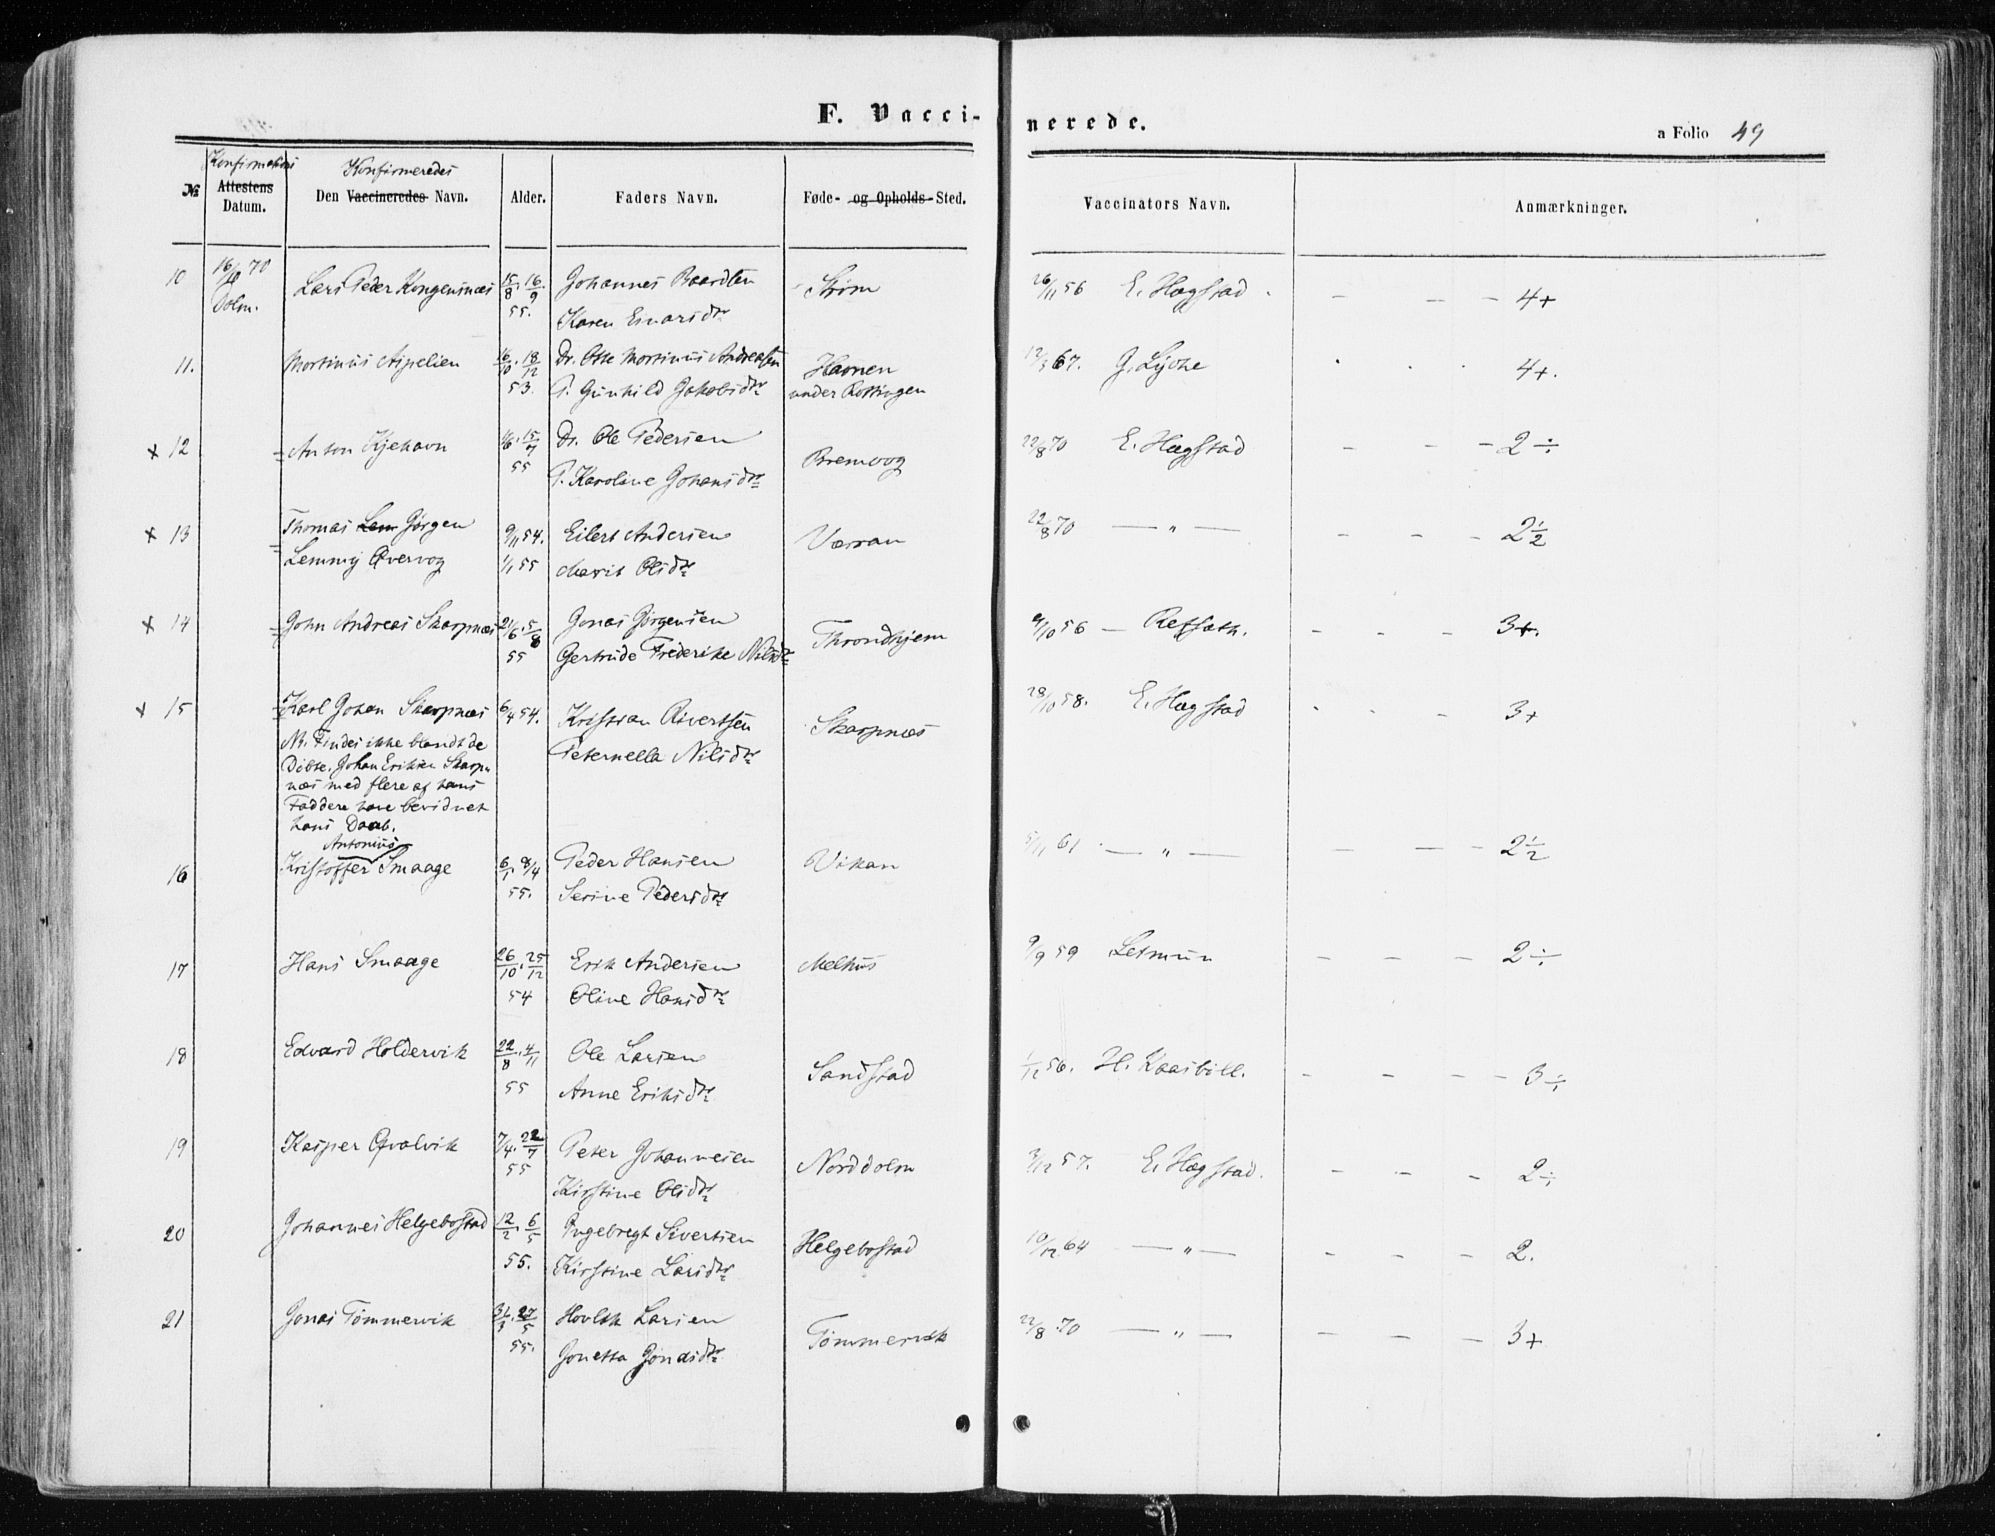 F. Vacci-
nerede.
a Folio 49
Konfirmeredes
№ Attestens Datum. Den Vaccineredes Navn. Alder. Faders Navn. Føde- og Opholds-Sted. Vaccinators Navn. Anmærkninger.
10 16/10 70 Lars Peder Kongensnæs 15/8. 16/9 Johannes Baardsen Strøm 26/11 56 E. Hagstad. - - - 4+
Dolm. 55. Karen Einarsdtr
11. Martinus Aspelien 16/10. 18/12 Dr. Otte Martinus Andreassen Havnen 67. G. Lyche 4+.
53. P. Gunhild Jakobsdtr under
x 12 = Anton Kjehavn 15/7 Dr. Ole Pedersen Bremvog 22/8 70 E. Hagstad - - - 2 ÷
55 P. Karoline Johansdtr
x 13 = Thomas Lem Jørgen 9/11 54. Eilert AndersenVærran 22/8 70 — „ — - - - 2½
Lemmy Qvervog 1/1 55 Marit Olsdtr
x 14 = John Andreas Skarpnæs 21/6. 5/8 Jonas Jørgensen Throndhjem 9/10 56 — - - - 3+.
55 Gertrude Frederike Nilsdtr
x 15 = Karl Johan Skarpnæs 6/4 54. Kristian Sivertsen Skarpnæs 28/10 58. E. Hagstad - - - 3+
Nb. Findes ikke blandt de Peternella Nilsdtr
Døbte. Johan Eriksen Skarp-
næs med flere af hans
Faddere have bevidnet
hans Daab.
Antonius
16 Kristoffer Smaage 6/1. 8/4 Peder Hansen Vikan 5/11 61 — „ — - - - 2½
55. Serine Pedersdtr
17 Hans Smaage 26/10. 25/12 Erik Andersen Melhus 9/9 59 Letmun - - - 2 ÷
54 Oline Hansdtr
18 Edvard Holdervik 22/8. 4/11 Ole Larsen Sandstad 1/12 56. H. Kaasböll. - - - - 3 ÷
55 Anne Eriksdtr
19 Kasper Qvalvik 7/4. 22/7 Peter Johannesen Norddolm 3/12 57. E. Hagstad. - - - 2 ÷
55 Kirstine Olsdtr
20 Johannes Helgebostad 12/2. 6/5 Ingebregt Sivertsen Helgebostad 10/12 64 — „ — - - - 2.
55. Kirstine Larsdtr
21 Jonas Tømmervik 31/3. 27/5 Larsen Tømmervik 22/8 70 — „ — - - - 3+
55. Jonetta Jonasdtr